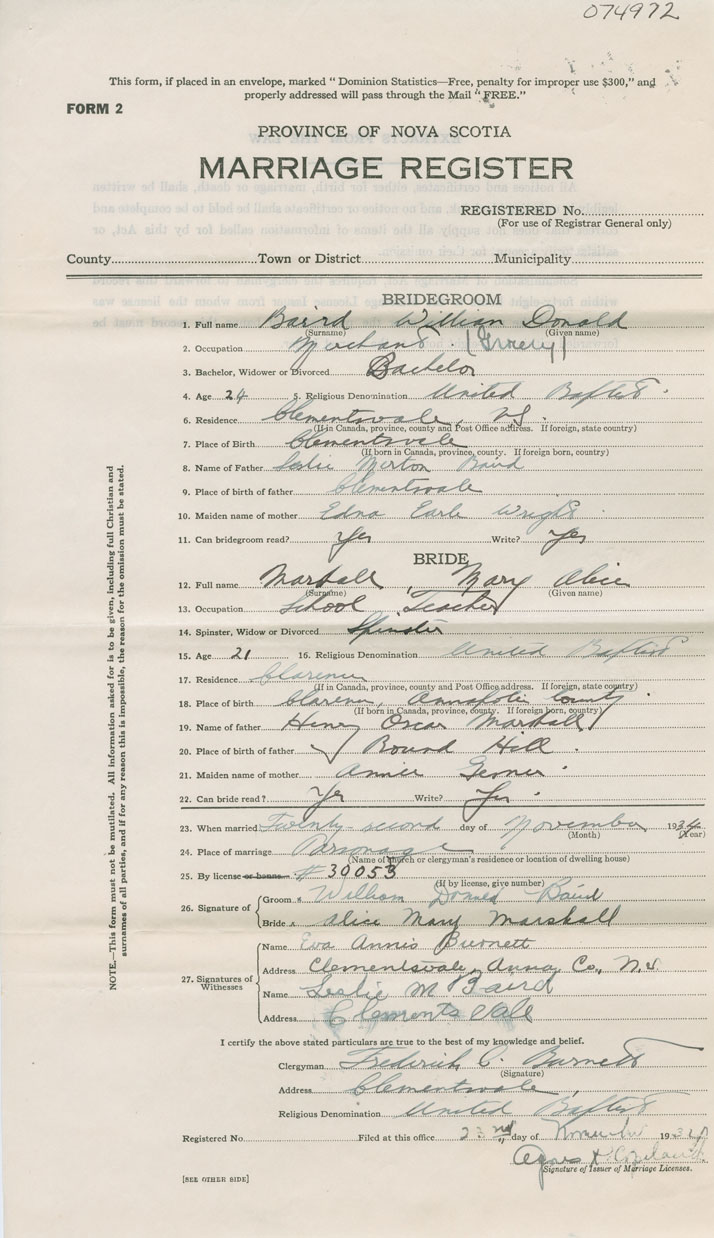 074972
This form, if placed in an envelope, marked "Dominion Statistics—Free, penalty for improper use $300," and
properly addressed will pass through the Mail "FREE."
FORM 2
PROVINCE OF NOVA SCOTIA
MARRIAGE REGISTER
REGISTERED No.
(For use of Registrar General only)
County Town or District Municipality
BRIDEGROOM
1. Full name Baird William Donald
(Surname) (Given name)
2. Occupation Merchant (Grocery)
3. Bachelor, Widower or Divorced Bachelor
4. Age 24 5. Religious Denomination United Baptist
6. Residence Clementsvale N.S.
(If in Canada, province, county and Post Office address. If foreign, state country)
7. Place of Birth Clementsvale
(If born in Canada, province, county. If foreign born, country)
8. Name of Father Leslie Morton Baird
9. Place of birth of father Clementsvale
10. Maiden name of mother Edna Earle Wright
11. Can bridegroom read? Yes Write? Yes
BRIDE
12. Full name Marshall, Mary Alice
(Surname) (Given name)
13. Occupation School Teacher
14. Spinster, Widow or Divorced Spinster
15. Age 21 16. Religious Denomination United Baptist
17. Residence Clarence
(If in Canada, province, county and Post Office address. If foreign, state country)
18. Place of birth Clarence, Annapolis County
(If born in Canada, province, county. If foreign born, country)
19. Name of father Henry Oscar Marshall
20. Place of birth of father Round Hill
21. Maiden name of mother Annie Gesner
22. Can bride read? Yes Write? Yes
23. When married Twenty-second day of November 1934
(Month) (Year)
24. Place of marriage Parsonage
(Name of church or clergyman's residence or location of dwelling house)
25. By license or banns # 30053
(If by license, give number)
26. Signature of Groom x William Donald Baird
Bride x Alice Mary Marshall
27. Signatures of Witnesses
Name Eva Annis Burnett
Address Clementsvale, Anna. Co., N.S.
Name Leslie M Baird
Address Clements vale
I certify the above stated particulars are true to the best of my knowledge and belief.
Clergyman Frederick C. Burnett
(Signature)
Address Clementsvale
Religious Denomination United Baptist
Registered No. Filed at this office 23nd day of November 1934
Agnes Copeland
Signature of Issuer of Marriage Licenses.
[SEE OTHER SIDE]
NOTE.—This form must not be mutilated. All information asked for is to be given, including full Christian and
surnames of all parties, and if for any reason this is impossible, the reason for the omission must be stated.